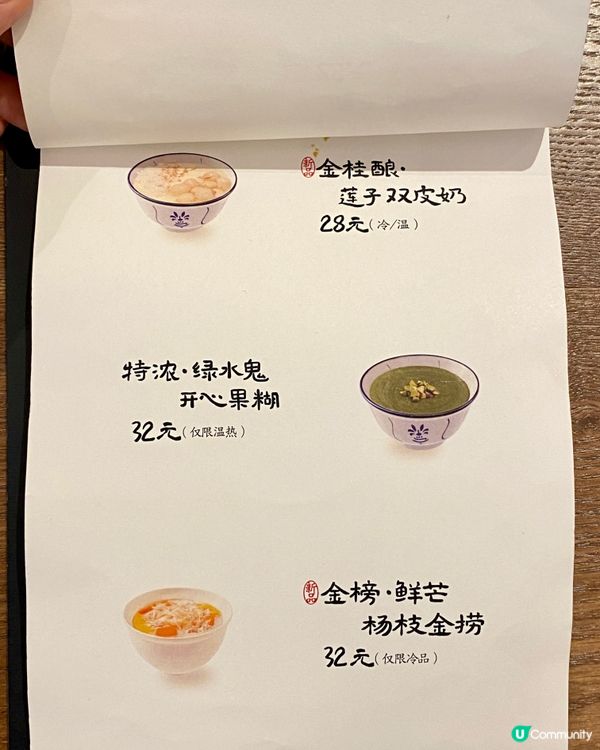 新品 金桂酿·
莲子双皮奶
28元(冷/温)
特浓·绿水鬼
开心果糊
32元(仅限温热)
新品 金榜·鲜芒
杨枝金捞
32元(仅限冷品)
U Community